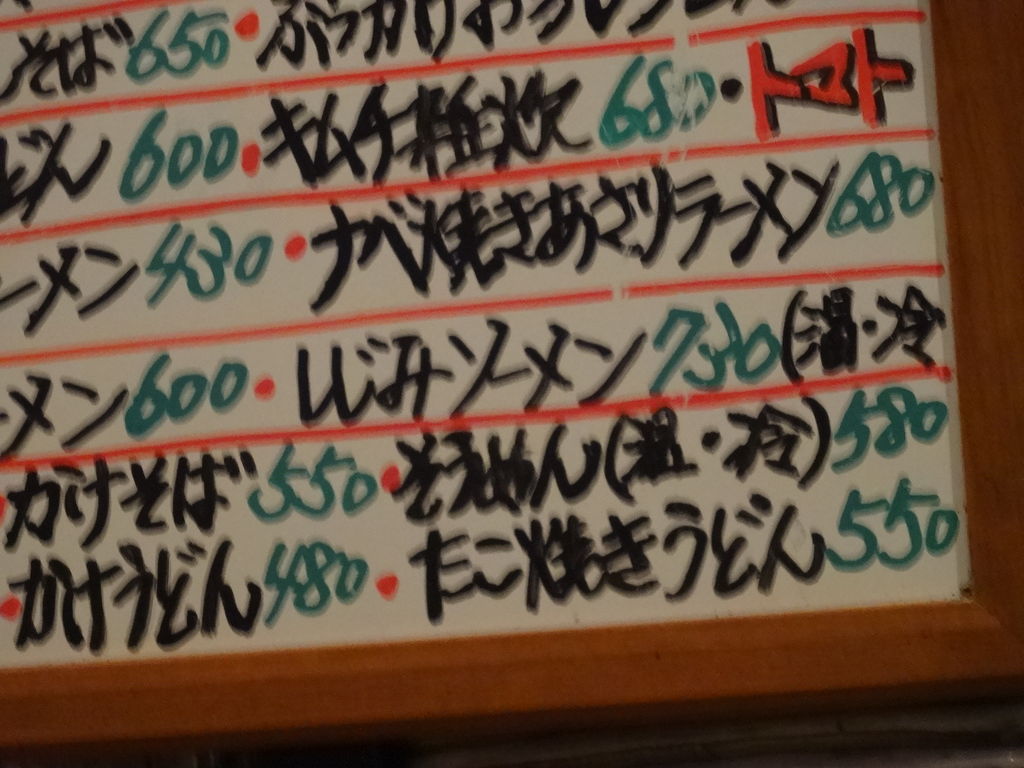 そば 650 ・ぶっかけ
どん 600 ・キムチ雑炊 680 ・トマト
ーメン 430 ・ナベ焼きあさりラーメン 680
ーメン 600 ・しじみソーメン 730 (温・冷
かけそば 550 ・そうめん (温・冷) 580
・かけうどん 480 ・たこ焼きうどん 550